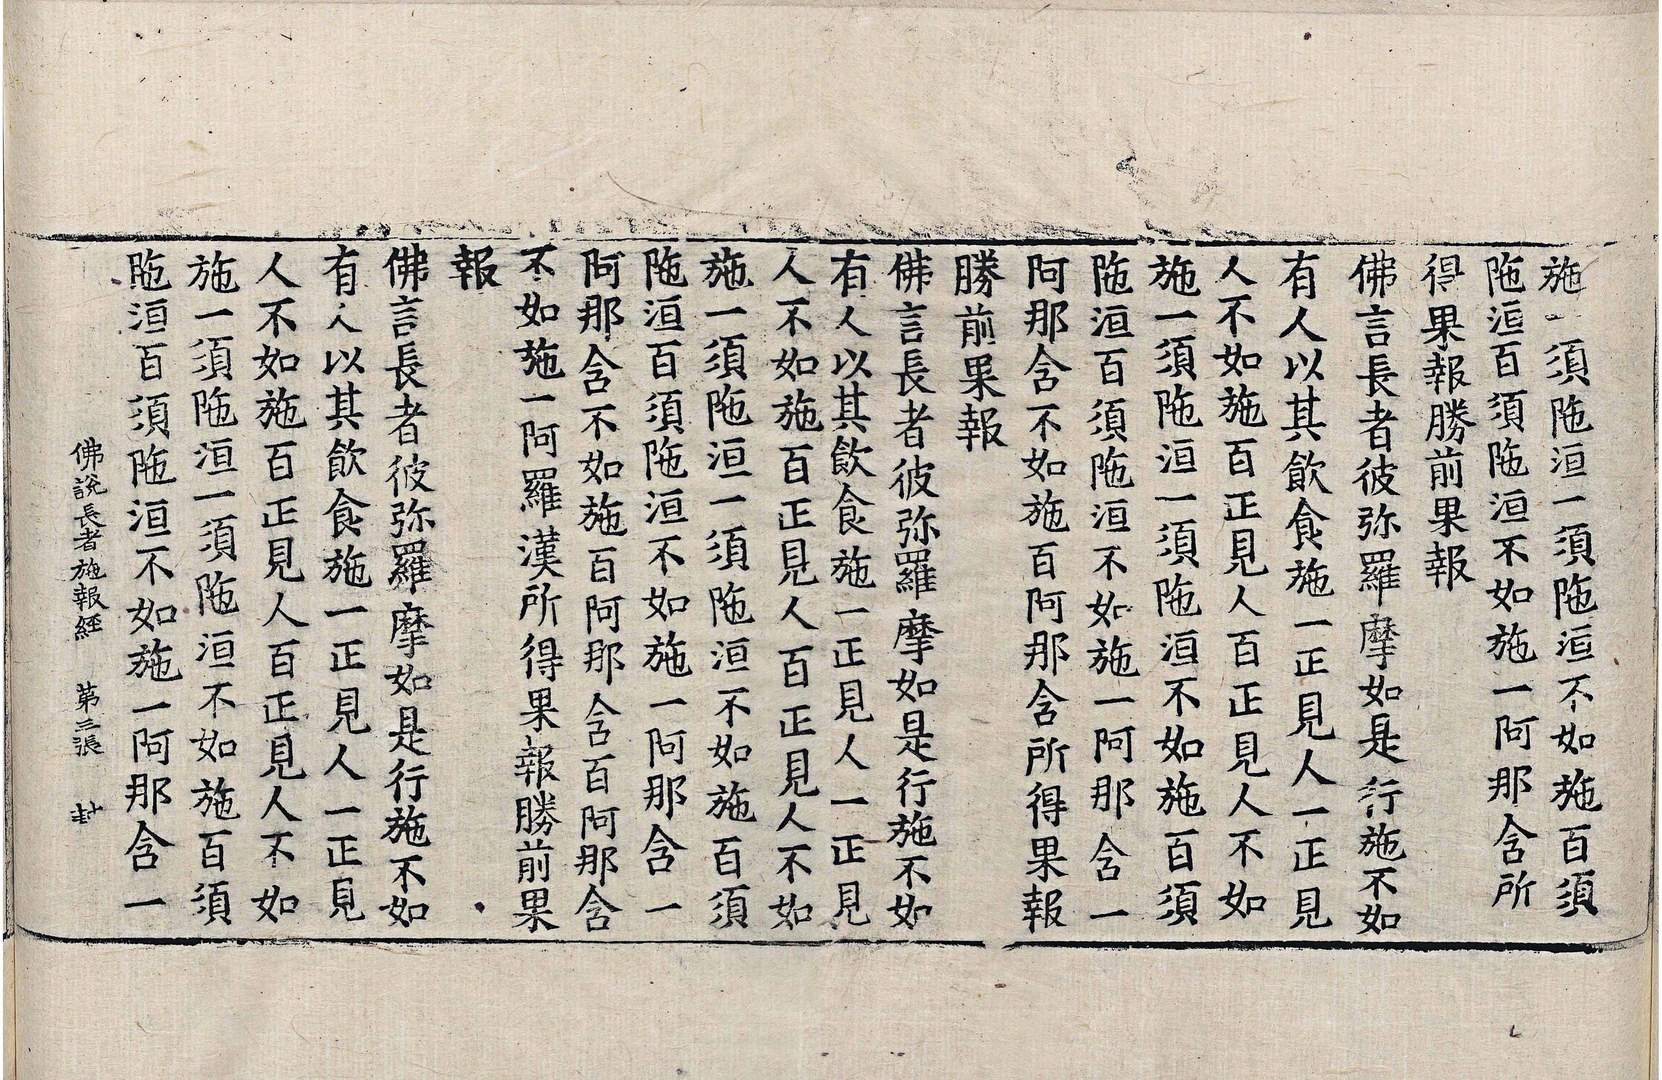 施一須陁洹一須陁洹不如施百須
陁洹百須陁洹不如施一阿那含所
得果報勝前果報
佛言長者彼弥羅摩如是行施不如
有人以其飲食施一正見人一正見
人不如施百正見人百正見人不如
施一須陁洹一須陁洹不如施百須
陁洹百須陁洹不如施一阿那含一
阿那含不如施百阿那含所得果報
勝前果報
佛言長者彼弥羅摩如是行施不如
有人以其飲食施一正見人一正見
人不如施百正見人百正見人不如
施一須陁洹一須陁洹不如施百須
陁洹百須陁洹不如施一阿那含一
阿那含不如施百阿那含百阿那含
不如施一阿羅漢所得果報勝前果
報
佛言長者彼弥羅摩如是行施不如
有人以其飲食施一正見人一正見
人不如施百正見人百正見人不如
施一須陁洹一須陁洹不如施百須
陁洹百須陁洹不如施一阿那含一
佛說長者施報經 第三張 封